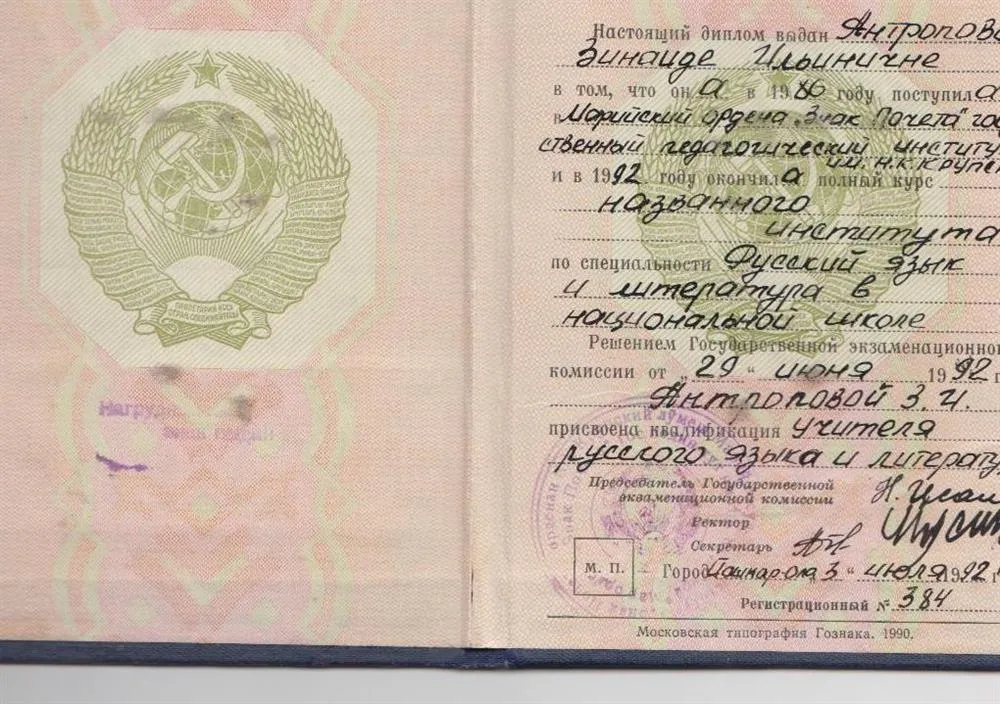 ПРОЛЕТАРИИ ВСЕХ
СТРАН, СОЕДИНЯЙТЕСЬ!
Нагрудный
знак выдан
Настоящий диплом выдан Антропово
Зинаиде Ильиничне
в том, что он а в 1986 году поступил а
в Марийский ордена „Знак Почета" гос
ственный педагогический институт
им. Н.К. Крупск
и в 1992 году окончил а полный курс
названного
института
по специальности Русский язык
и литература в
национальной школе
Решением Государственной экзаменационной
комиссии от „29" июня 1992 г
Антроповой З.И.
присвоена квалификация учителя
русского языка и литерату
Председатель Государственной
экзаменационной комиссии
Ректор
Секретарь
М. П.
Город Йошкар-Ола 3 " июля 1992 г
Регистрационный № 384
Московская типография Гознака. 1990.